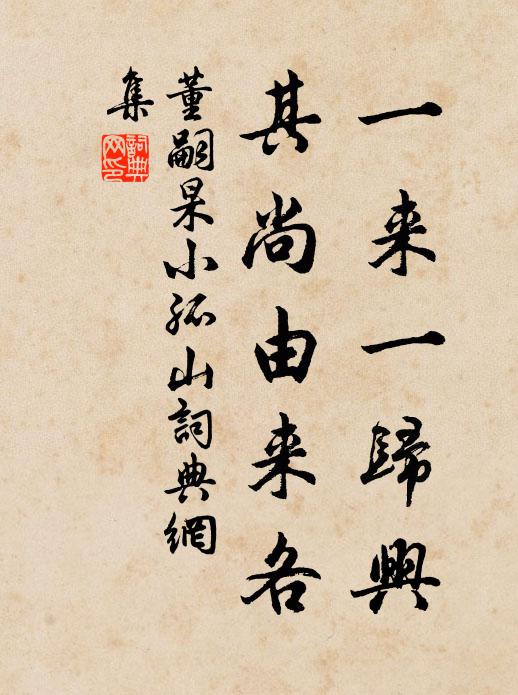 一来一歸興
其尚由来各
董嗣杲小孤山詞典網
集
詞典網印